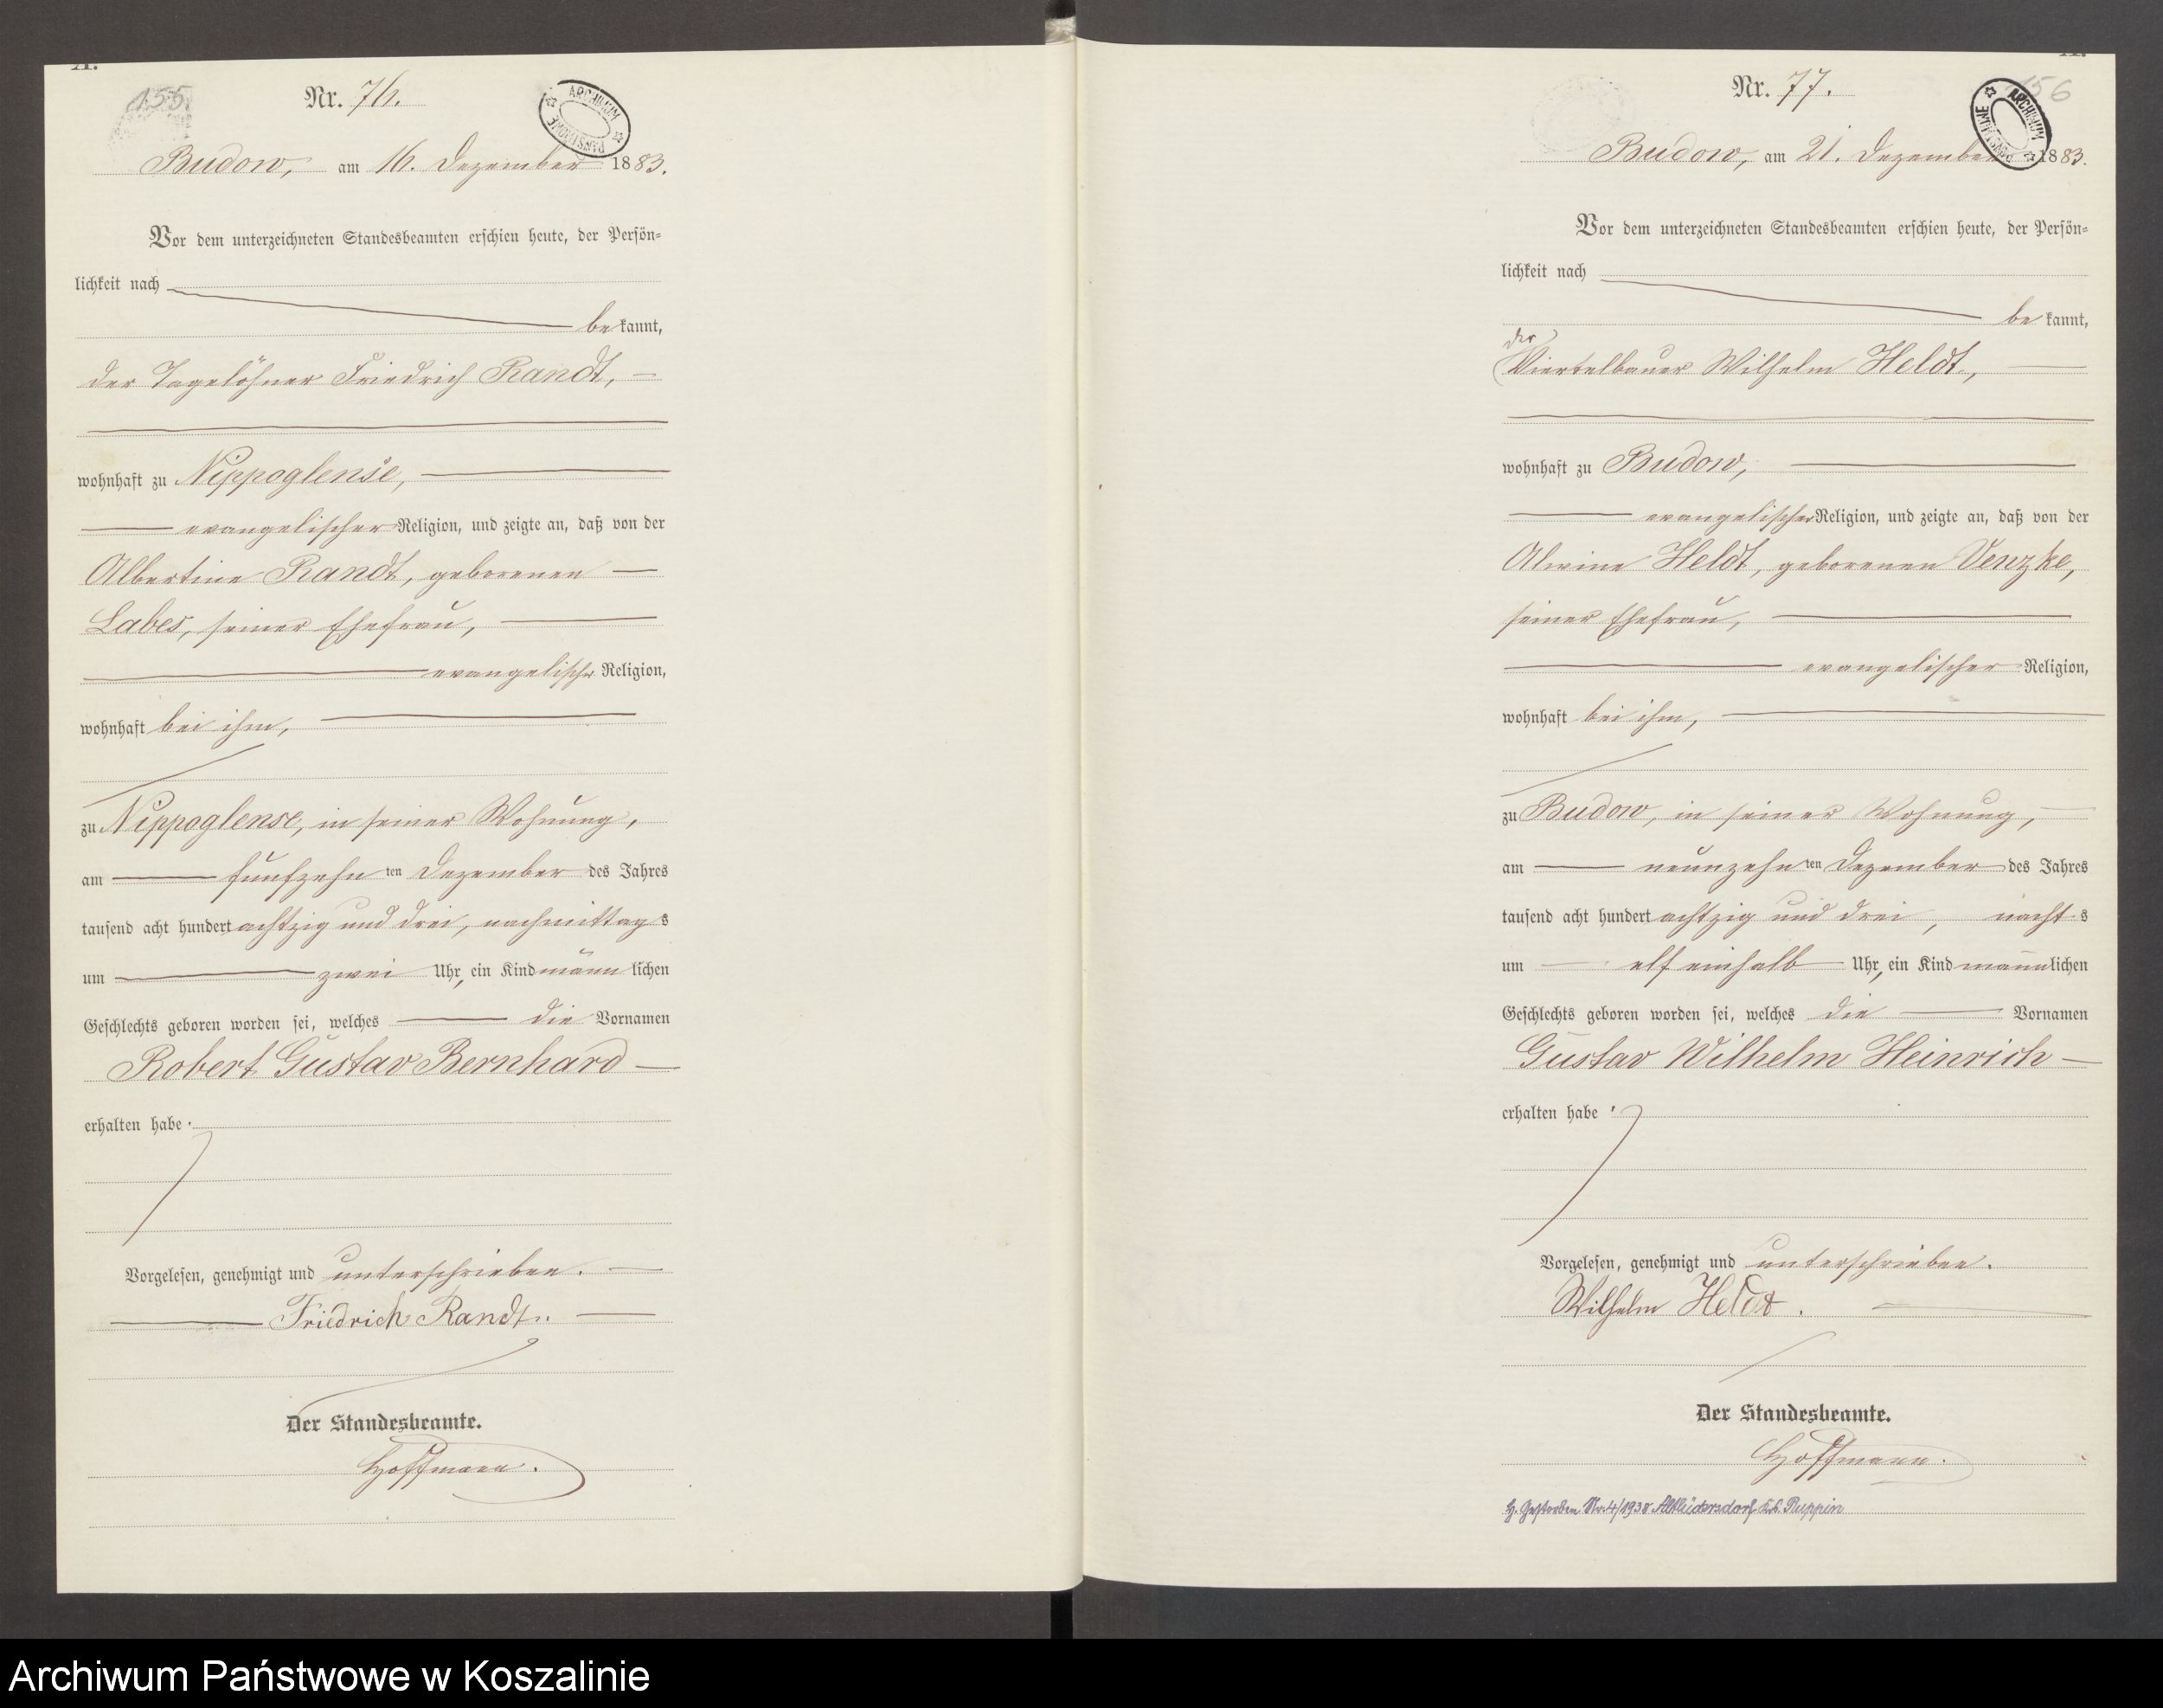 155
Nr. 76.
ARCHIWUM PAŃSTWOWE
Budow, am 16. Dezember 1883.
Vor dem unterzeichneten Standesbeamten erschien heute, der Persön-
lichkeit nach
bekannt,
der Tagelöhner Friedrich Randt,
wohnhaft zu Nippoglense,
evangelischer Religion, und zeigte an, daß von der
Albertine Randt, geborenen
Labes, seiner Ehefrau,
evangelischer Religion,
wohnhaft bei ihm,
zu Nippoglense, in seiner Wohnung,
am fünfzehn ten Dezember des Jahres
tausend acht hundert achtzig und drei, nachmittags
um zwei Uhr, ein Kind männlichen
Geschlechts geboren worden sei, welches die Vornamen
Robert Gustav Bernhard
erhalten habe.
Vorgelesen, genehmigt und unterschrieben.
Friedrich Randt.
Der Standesbeamte.
Hoffmann.
156
Nr. 77.
ARCHIWUM PAŃSTWOWE
Budow, am 21. Dezember 1883.
Vor dem unterzeichneten Standesbeamten erschien heute, der Persön-
lichkeit nach
bekannt,
der
Viertelbauer Wilhelm Heldt,
wohnhaft zu Budow,
evangelischer Religion, und zeigte an, daß von der
Alwine Heldt, geborenen Venzke,
seiner Ehefrau,
evangelischer Religion,
wohnhaft bei ihm,
zu Budow, in seiner Wohnung,
am neunzehn ten Dezember des Jahres
tausend acht hundert achtzig und drei, nachts
um elf einhalb Uhr, ein Kind männlichen
Geschlechts geboren worden sei, welches die Vornamen
Gustav Wilhelm Heinrich
erhalten habe.
Vorgelesen, genehmigt und unterschrieben.
Wilhelm Heldt.
Der Standesbeamte.
Hoffmann.
Gestorben Nr. 4/1938 Altlüdersdorf Krs. Ruppin
Archiwum Państwowe w Koszalinie